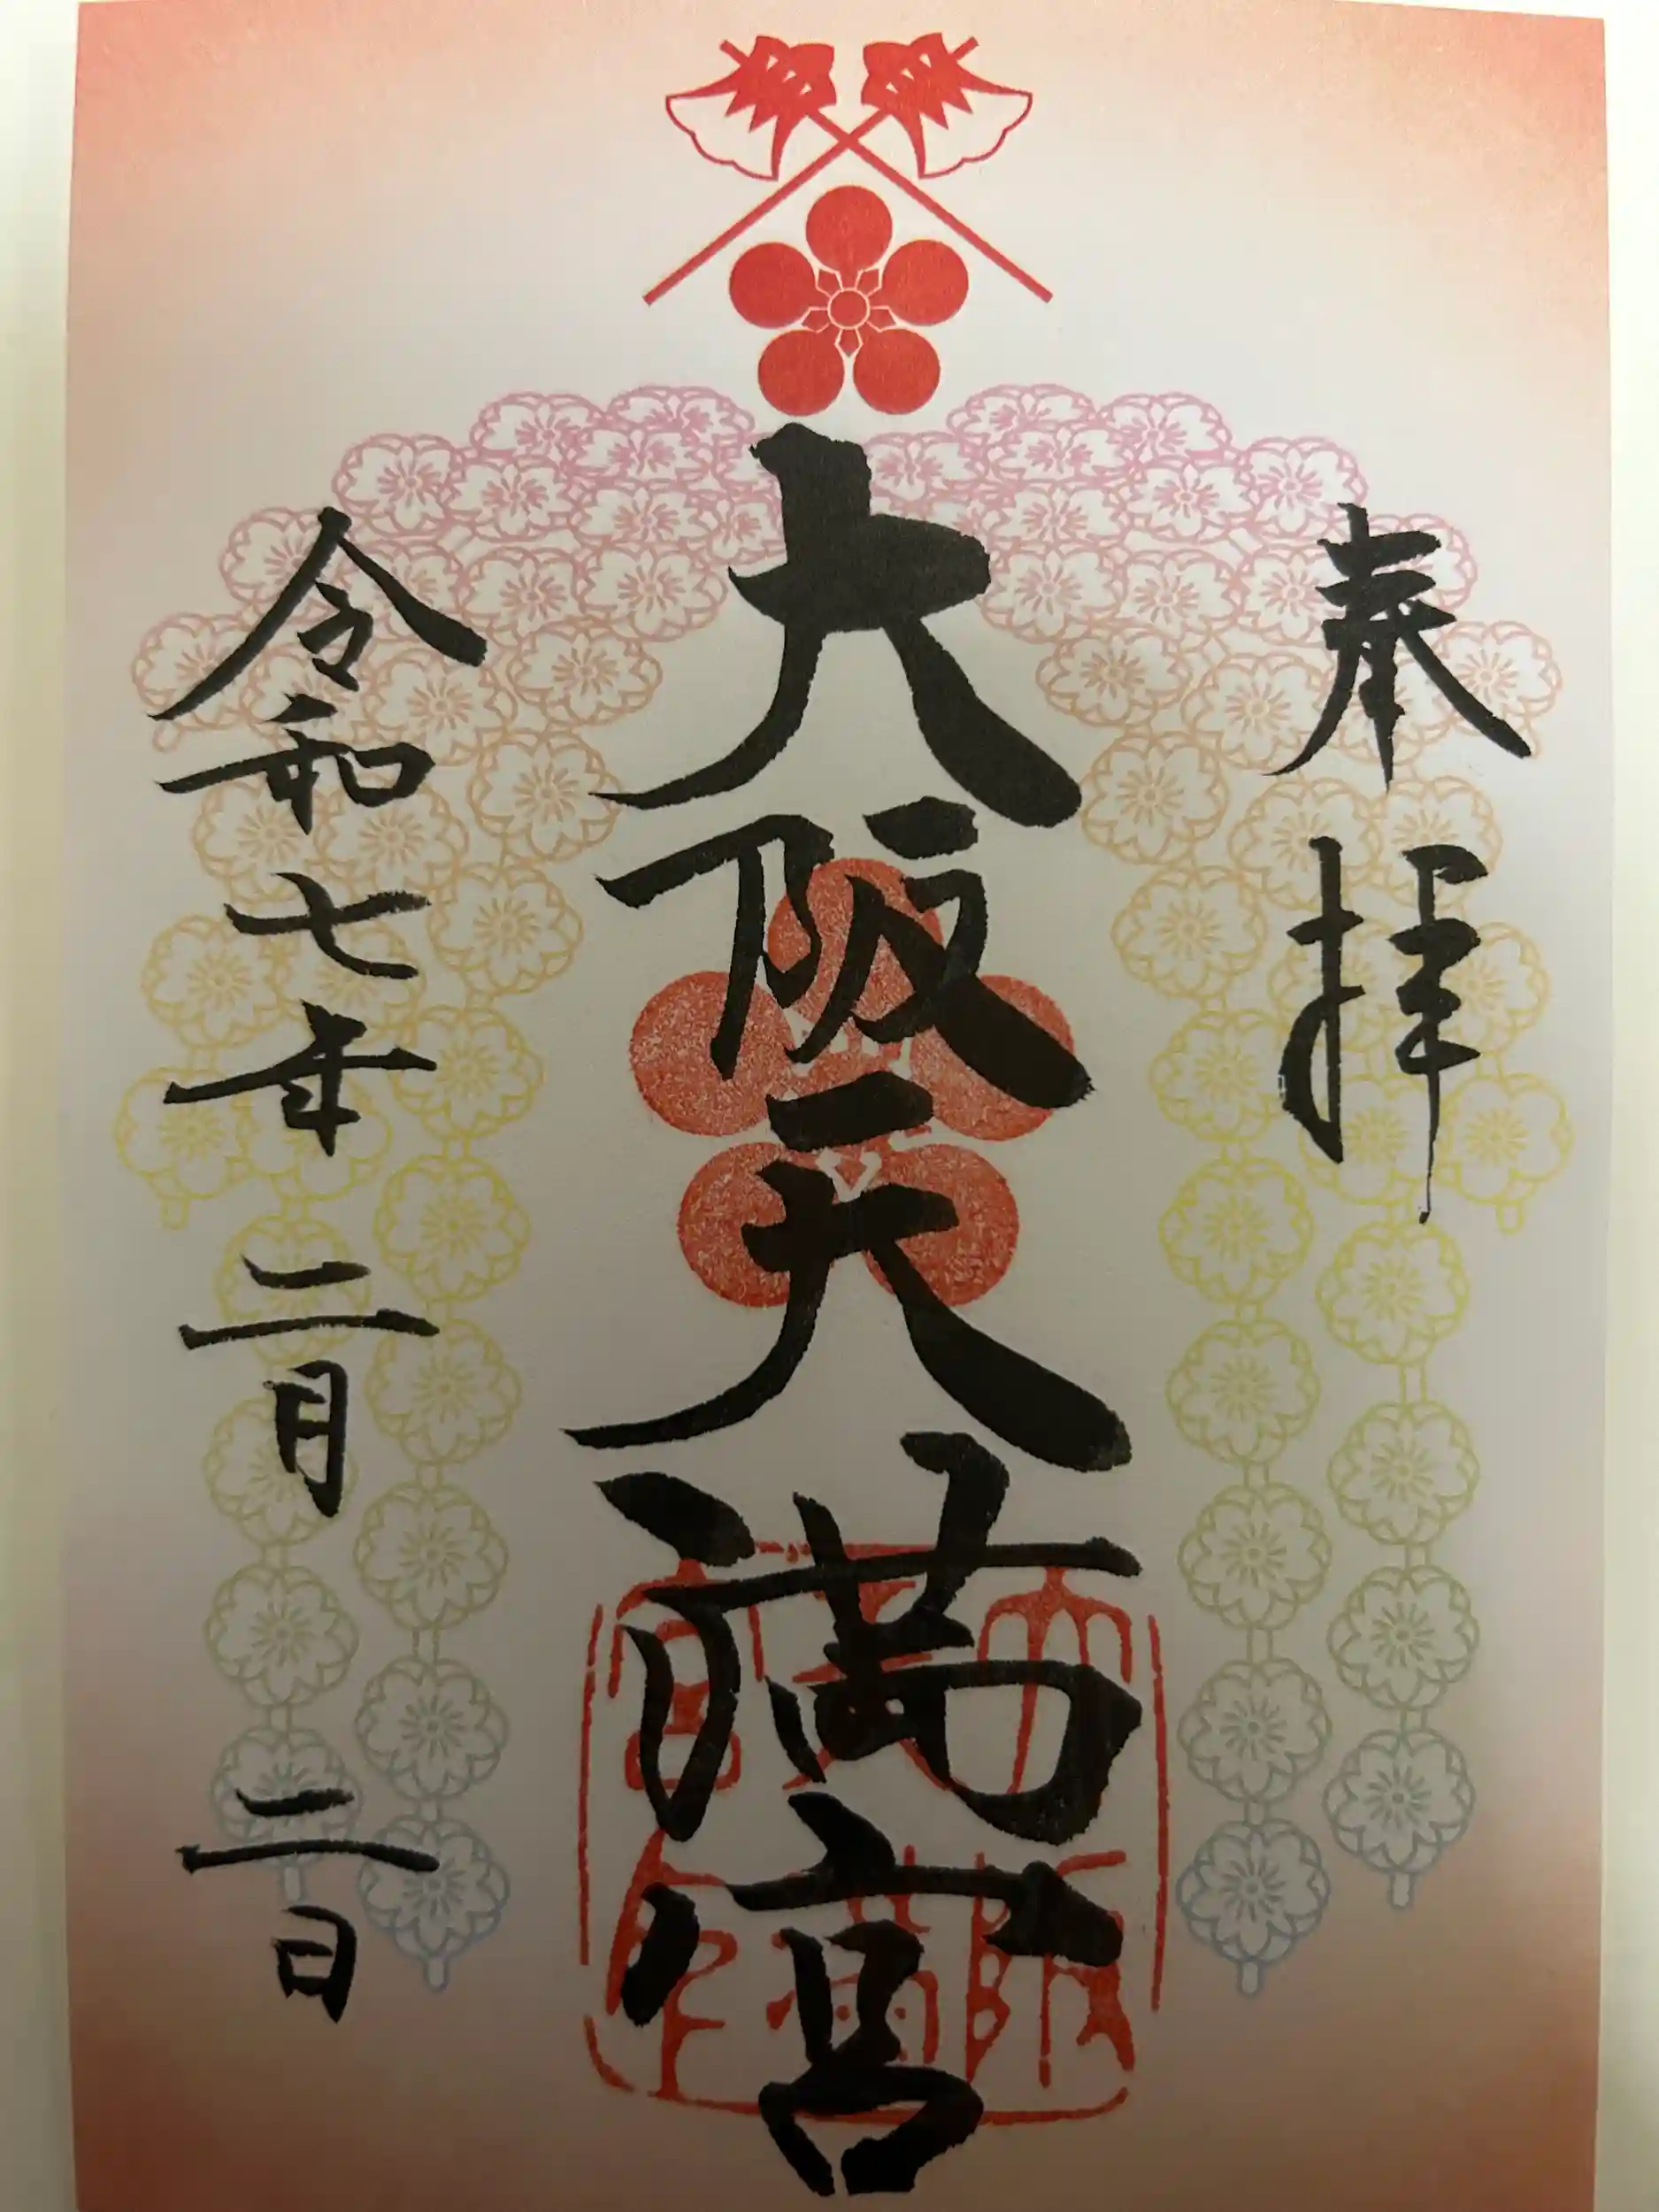 奉拝
大阪天満宮
令和七年二月二日